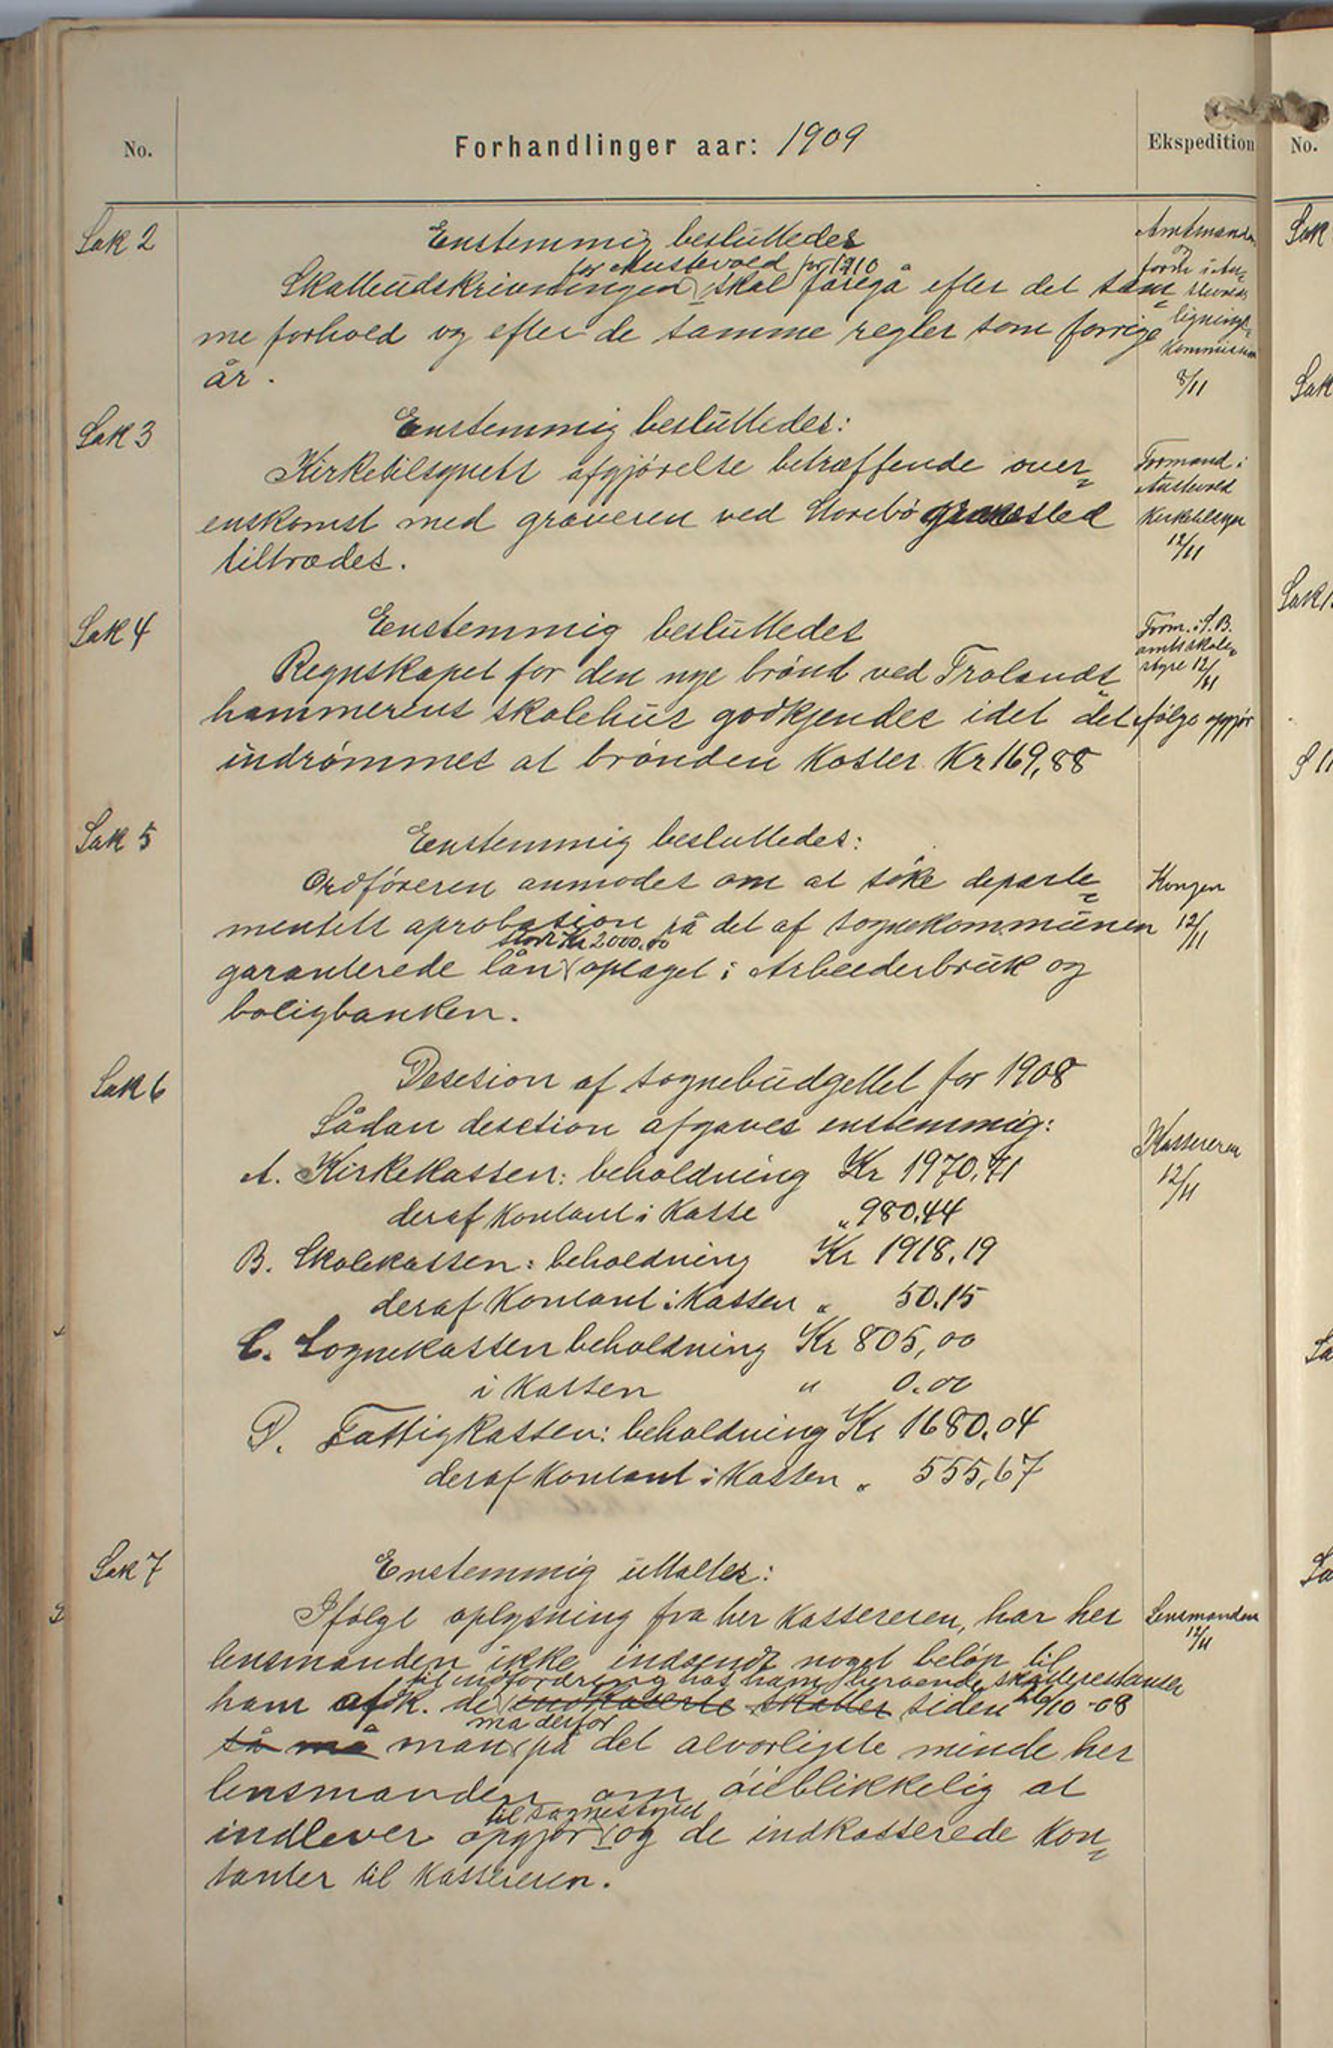 No.
Forhandlinger aar: 1909
Ekspedition
No.
Sak 2
Enstemmig besluttedes
for Austevold for 1910
Skatteudskrivningen skal foregå efter det sam=
me forhold og efter de samme regler som forrige
år.
Amtmanden
og
ford i Au=
stevolds
lignings=
kommission
8/11
Sak 3
Enstemmig besluttedes:
Kirketilsynets afgjørelse betræffende over=
enskomst med graveren ved Storebø gravsted
tiltrædes.
Formand i
Austevold
Kirketilsyn
12/11
Sak 4
Enstemmig besluttedes
Regnskapet for den nye brønd ved Trolands=
hammerens skolehus godkjendes idet det
indrømmes at brønden koster Kr 169,88
Form. i S.B.
amtsskole=
styre 12/11
følge opgjør
Sak 5
Enstemmig besluttedes:
Ordføreren anmodes om at søke departe=
mentets aprobation på det af sognekommunen
stort Kr 2000.00
garanterede lån optaget i Arbeiderbruk og
boligbanken.
Kongen
12/11
Sak 6
Desesion af sognebudgettet for 1908
Sådan desetion afgaves enstemmig:
A. Kirkekassen: beholdning Kr 1970.41
deraf kontant i kasse " 980.44
B. Skolekassen: beholdning Kr 1918.19
deraf kontant i kassen " 50.15
C. Sognekassen beholdning Kr 805,00
i kassen " 0.00
D. Fattigkassen: beholdning Kr 1680.04
deraf kontant i kassen " 555,67
Kassereren
12/11
Sak 7
Enstemmig uttaltes:
Ifølge oplysning fra her kassereren, har her
lensmanden ikke indsendt noget beløp til
til indfordring hos ham beroende skatterestanser
ham afk. de indkaserte skatter siden 26/10-08
må derfor
så må man på det alvorligste minde her
lensmanden om øieblikkelig at
til sognestyret
indlever opgjør og de indkasserede kon=
tanter til kassereren.
Lensmanden
12/11
Sak
Sak
Sak 1
Sa
Sa